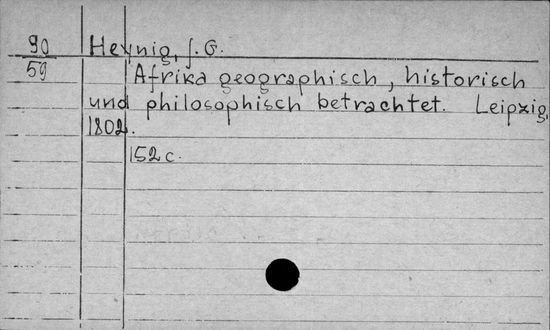 90 Heynig, J. G.
59 Afrika geographisch, historisch
und philosophisch betrachtet. Leipzig,
1802.
152 c.